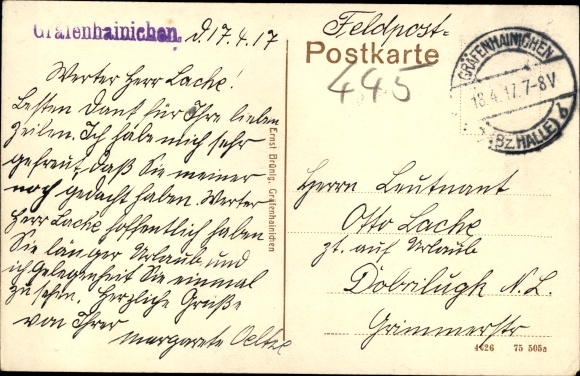 Gräfenhainichen. d. 17.4.17
Werter Herr Lache!
Besten Dank für Ihre lieben
Zeilen. Ich habe mich sehr
gefreut, daß Sie meiner
noch gedacht haben. Werter
Herr Lache hoffentlich haben
Sie länger Urlaub und
ich Gelegenheit Sie einmal
zu sehen. Herzliche Grüße
von Ihrer
Margarete
Ernst Brünig, Gräfenhainichen
Feldpost=
Postkarte
445
GRÄFENHAINICHEN
18.4.17.7-8V
(Bz. HALLE) b
Herrn Leutnant
Otto Lache
zt. auf Urlaub
Dobrilugk N.L.
Grimmerstr
4426 75 505a